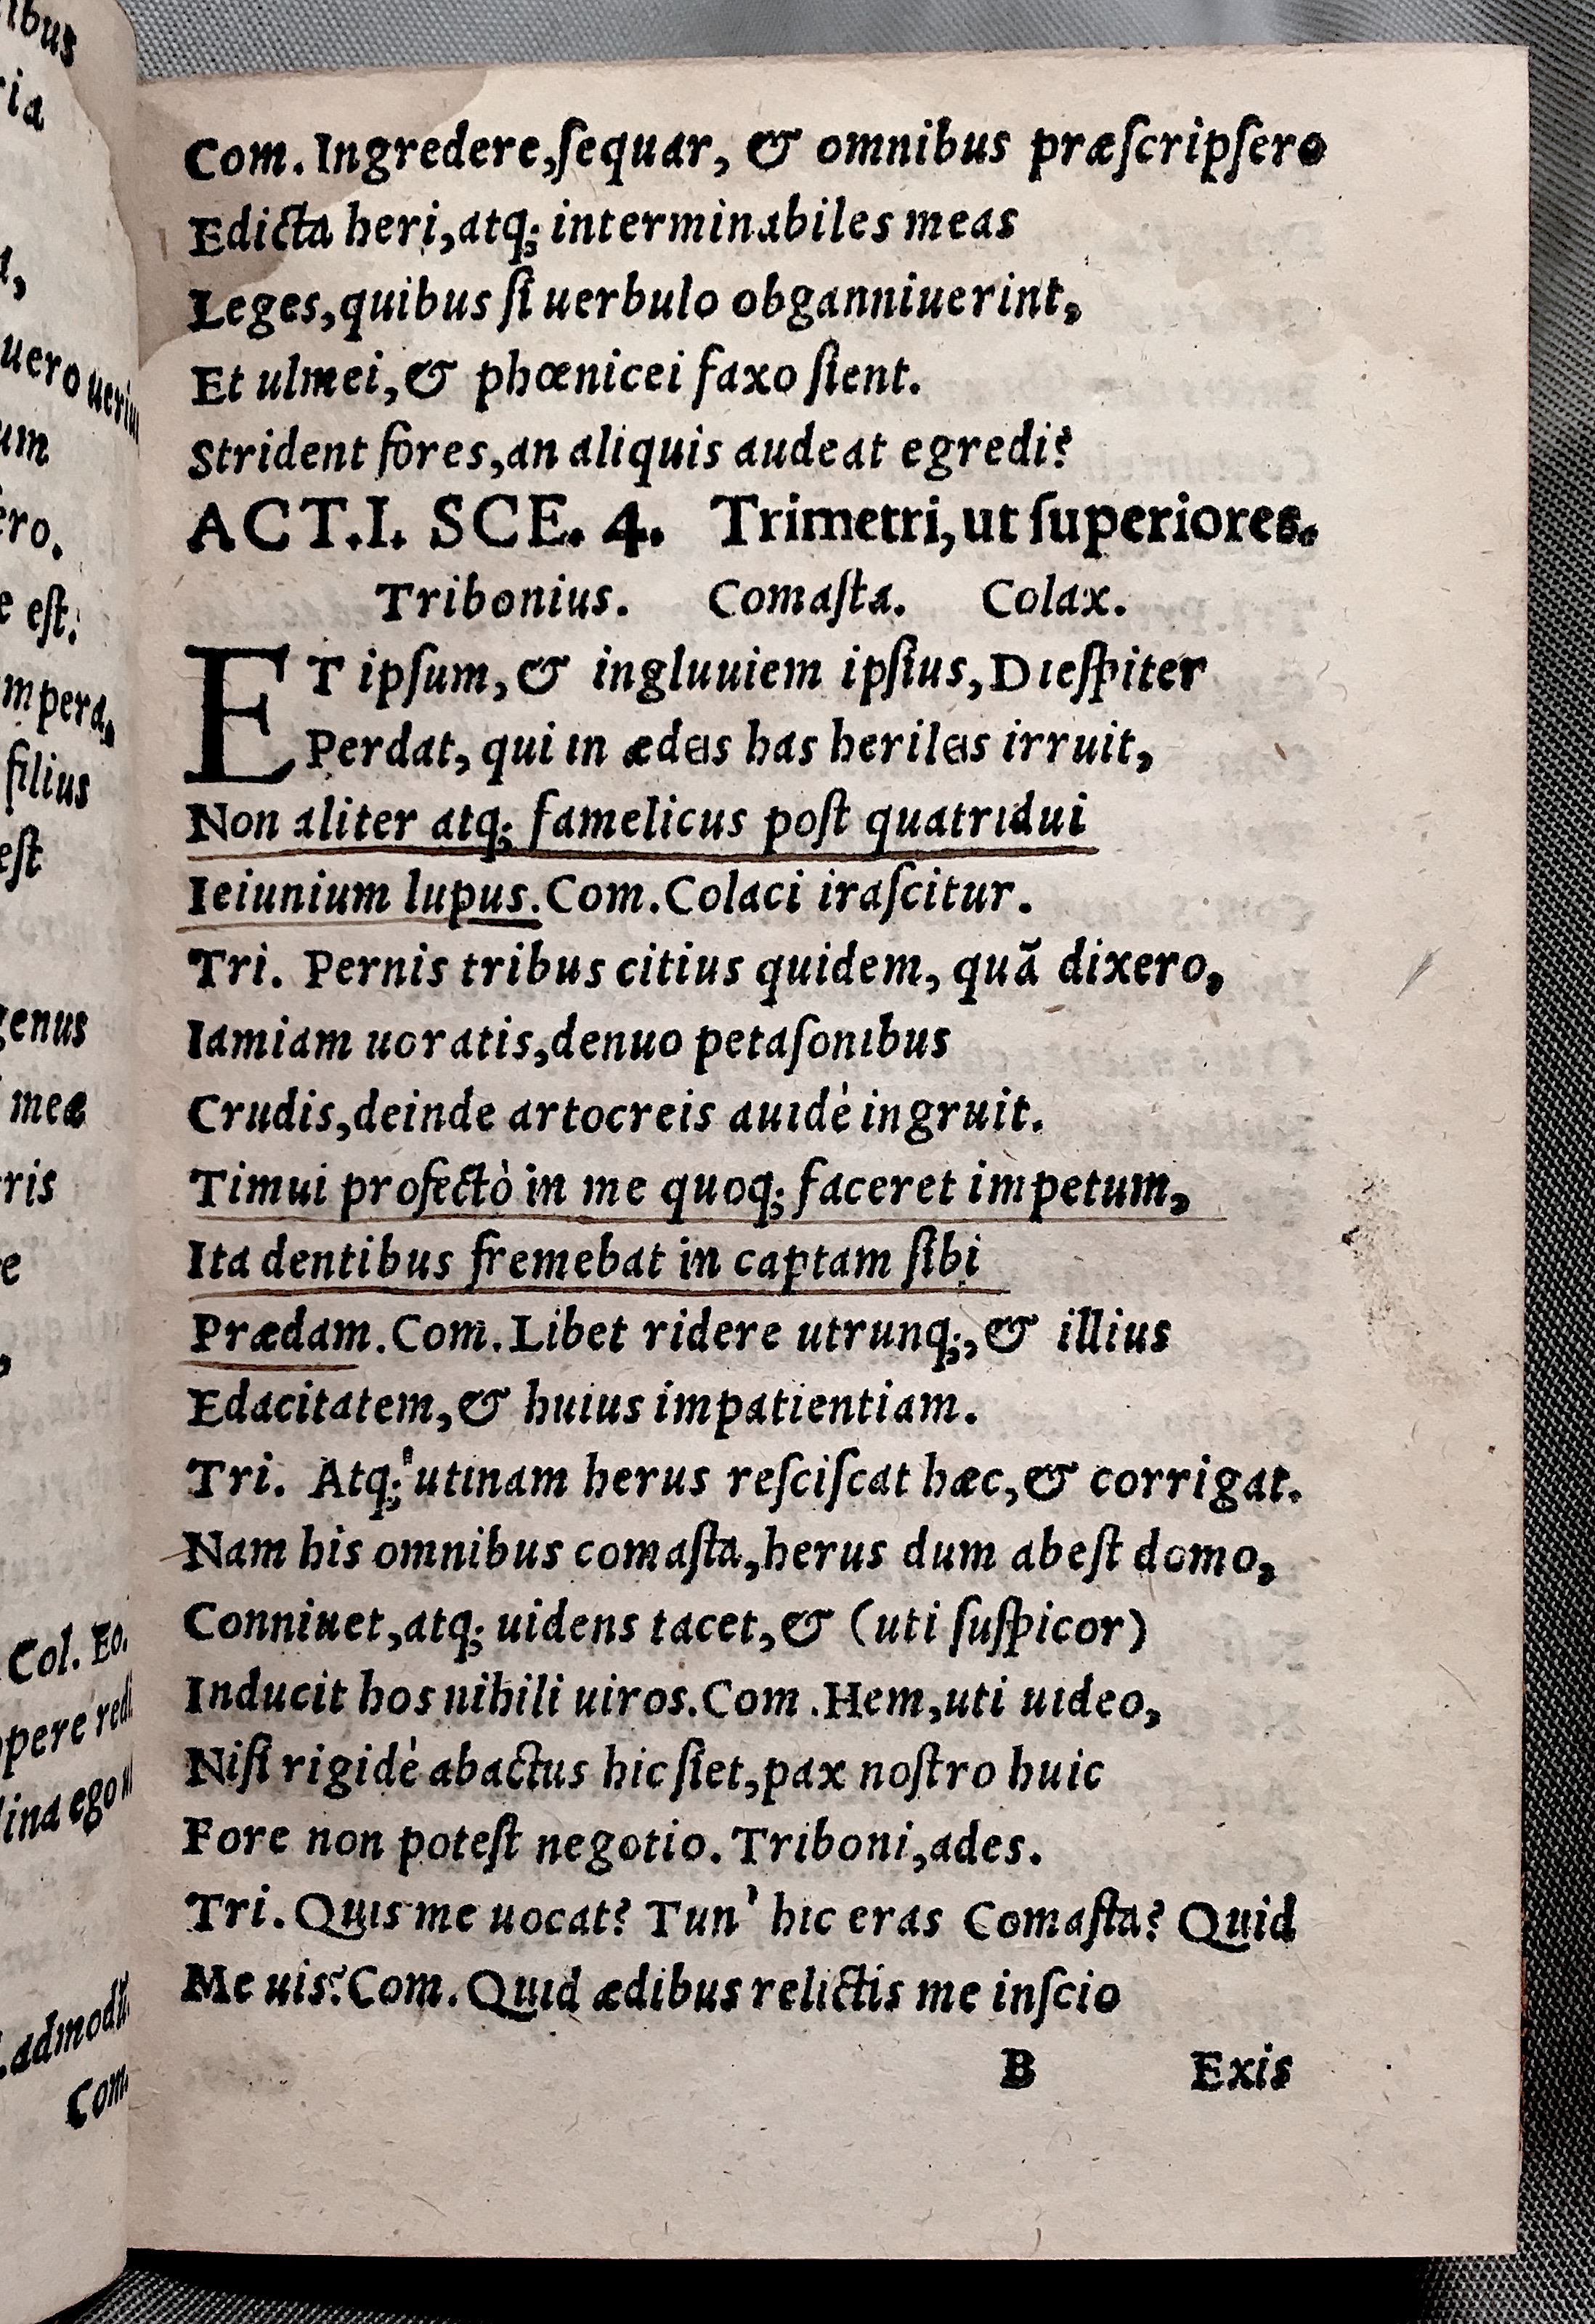 Com. Ingredere, ſequar, & omnibus præſcripſero
Edicta heri, atq; interminabiles meas
Leges, quibus ſi uerbulo obganniuerint,
Et ulmei, & phœnicei faxo ſient.
Strident fores, an aliquis audeat egredi?
ACT. I. SCE. 4. Trimetri, ut ſuperiores.
Tribonius. Comaſta. Colax.
ET ipſum, & ingluuiem ipſius, Dieſpiter
Perdat, qui in ædeis has herileis irruit,
Non aliter atq; famelicus poſt quatridui
Ieiunium lupus. Com. Colaci iraſcitur.
Tri. Pernis tribus citius quidem, quã dixero,
Iamiam uoratis, denuo petaſonibus
Crudis, deinde artocreis auidè ingruit.
Timui profectò in me quoq; faceret impetum,
Ita dentibus fremebat in captam ſibi
Prædam. Com. Libet ridere utrunq;, & illius
Edacitatem, & huius impatientiam.
Tri. Atq; utinam herus reſciſcat hæc, & corrigat.
Nam his omnibus comaſta, herus dum abeſt domo,
Conniuet, atq; uidens tacet, & (uti ſuſpicor)
Inducit hos nihili uiros. Com. Hem, uti uideo,
Niſi rigidè abactus hic ſiet, pax noſtro huic
Fore non poteſt negotio. Triboni, ades.
Tri. Quis me uocat? Tun' hic eras Comaſta? Quid
Me uis? Com. Quid ædibus relictis me inſcio
B Exis